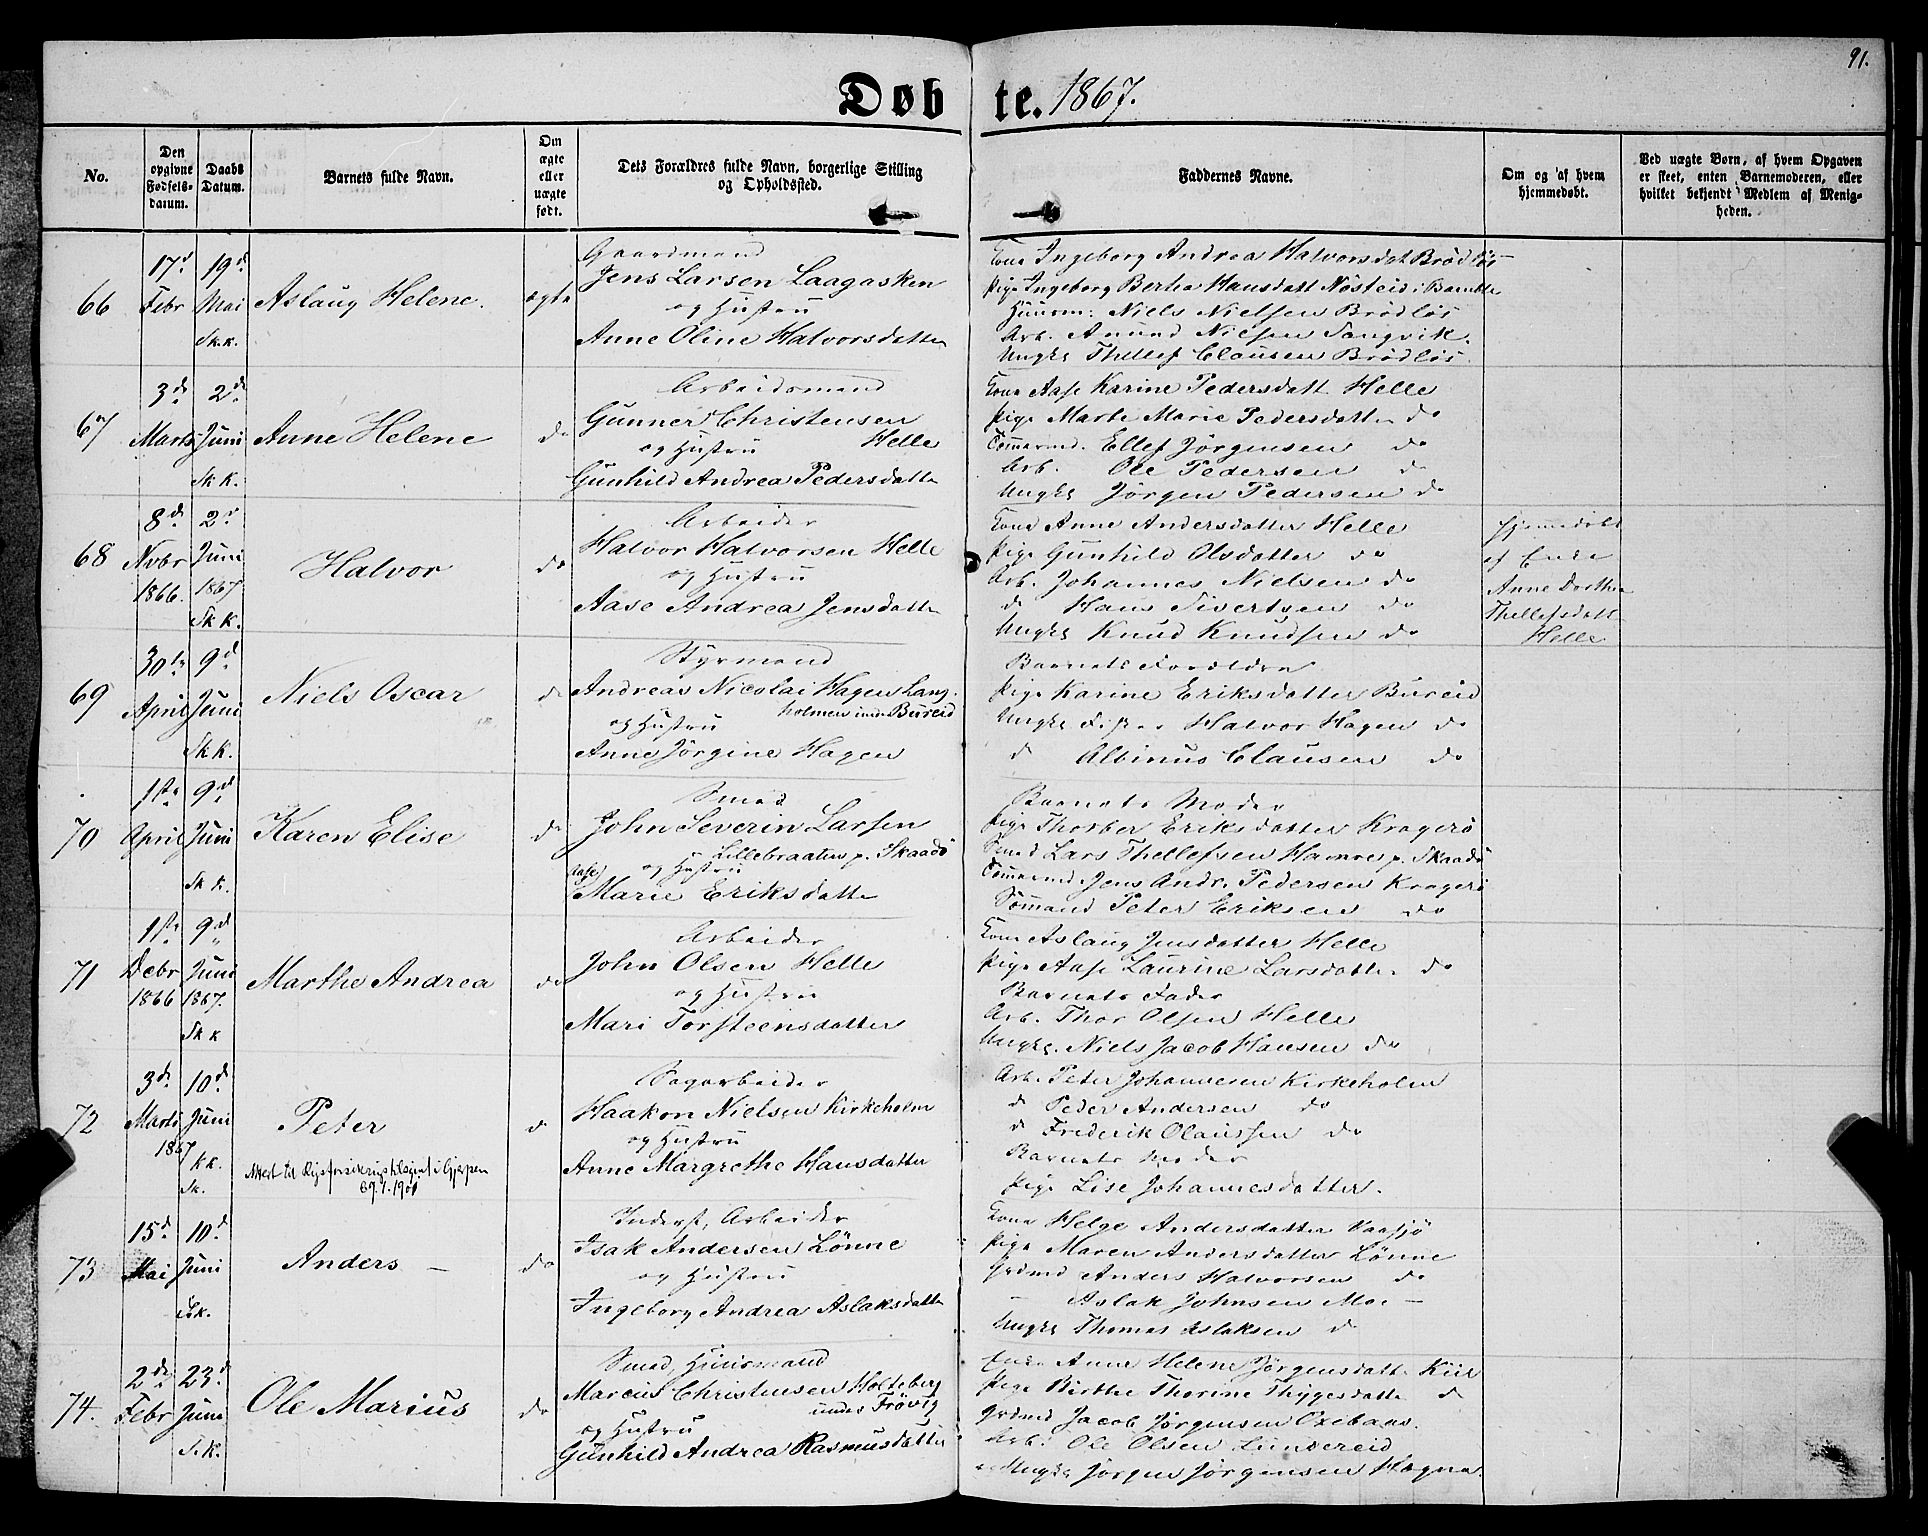 91.
Døbte. 1867.
No.
Den opgivne Fødsels-datum.
Daabs Datum.
Barnets fulde Navn.
Om ægte eller uægte født.
Dets Forældres fulde Navn, borgerlige Stilling og Opholdssted.
Faddernes Navne.
Om og af hvem hjemmedøbt.
Ved uægte Børn, af hvem Opgaven er skeet, enten Barnemoderen, eller hvilket bekjendt Medlem af Menigheden.
66
17d Febr
19d Mai Sk.k.
Aslaug Helene.
ægte
Gaardmand
Jens Larsen Laagasken
og Hustru
Anne Oline Halvorsdatter
Kone Ingeborg Andrea Halvorsdat Brödlös
Pige Ingeborg Berthe Hansdatt Nösteid i Bamble
Huusm: Niels Nielsen Brödlös
Arb. Amund Nilsen Tangvik.
Ungkl Thellef Clausen Brödlös
67
3d Marts
2d Juni Sk K.
Anne Helene
do
Arbeidsmand
Gunner Christensen
og Hustru Helle
Gunhild Andrea Pedersdatter
Kone Aase Karine Pedersdatt Helle
Pige Marte Marie Pedersdatter do
Tömmermd. Ellef Jörgensen do
Arb. Ole Pedersen do
Ungkl Jörgen Pedersen do
68
8d Nvbr 1866.
2d Juni 1867 Sk K.
Halvor
do
Arbeider
Halvor Halvorsen Helle
og Hustru
Aase Andrea Jensdatter
Kone Anne Andersdatter Helle
Pige Gunhild Olsdatter do
Arb. Johannes Nielsen do
d Hans Sivertsen do
Ungkl Knud Knudsen do
hjemmedöbt
af Enke
Anne Dorthea
Thellefsdatt
Helle
69
30te April
9d Juni Sk K.
Niels Oscar
do
Styrmand
Andreas Nicolai Hagen Lang-
holmen under Bureid
og Hustru
Anne Jörgine Hagen
Barnets Forældre
Pige Karine Eriksdatter Bureid
Ungkl Fisker Halvor Hagen do
d Albinus Clausen do
70
1ste April
9d Juni Sk K.
Karen Elise
do
Smed
John Severin Larsen
Lillebraaten p. Skaadö
og Hustru
(Aase)
Marie Eriksdatter
Barnets Moder
Pige Thorber Eriksdatter Kragerö
Smed Lars Thellefsen Hamre p. Skaadö
Tömmermd. Jens Andr. Pedersen Kragerö
Sömand Peter Eriksen do
71
1ste Debr 1866
9d Juni 1867. Sk k
Marthe Andrea
do
Arbeider
John Olsen Helle
og Hustru
Mari Torsteensdatter
Kone Aslaug Jensdatter Helle
Pige Aase Laurine Larsdatter do
Barnets Fader
Arb. Thor Olsen Helle
Ungkl. Niels Jacob Hansen do
72
3d Marts 1867
10d Juni K.K. Sk.
Peter
d
Sagarbeider
Haakon Nielsen Kirkeholm
og Hustru
Anne Margrethe Hansdatter
Arb. Peter Johannesen Kirkeholm
d Peder Andersen do
d Frederik Olaussen do
Barnets Moder
Pige Lise Johannesdatter.
73
15d Mai
10d Juni Sk.
Anders –
do
Inderst, Arbeider
Isak Andersen Lönne
og Hustru
Ingeborg Andrea Aslaksdatter
Kone Helge Andersdatter Vaasjö
Pige Maren Andersdatter Lönne
Grdmd Anders Halvorsen do
– Aslak Johnsen Moe –
Ungkl Thomas Aslaksen d
74.
2d Febr
23d Juni S.K.
Ole Marius
do
Smed, Huusmand
Marcus Christensen Holteberg
under Frövig
og Hustru
Gunhild Andrea Rasmusdatter
Enke Anne Helene Jörgensdatt. Kiil
Pige Birthe Thorine Thygesdatte d
Grdmd Jacob Jörgensen Oxebaas.
Arb. Ole Olsen Lundereid
Ungkl Jörgen Jörgensen Hogna.